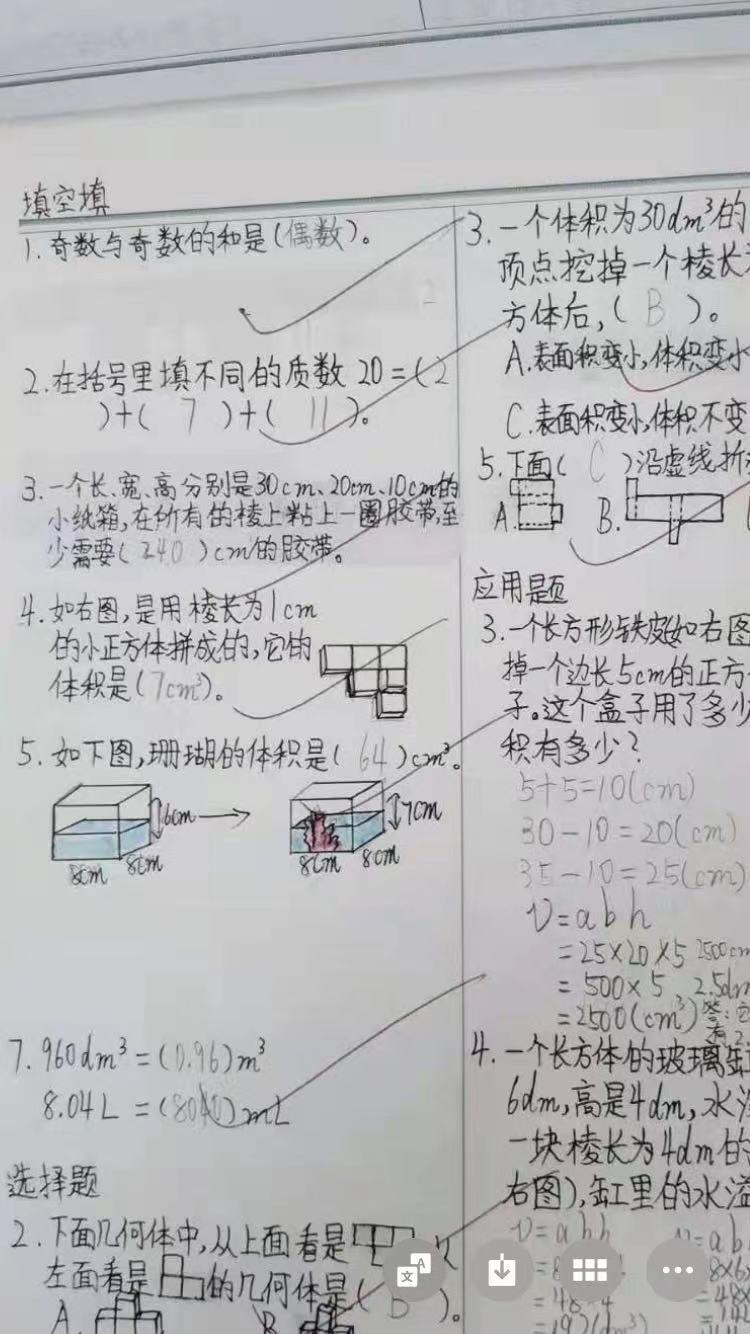 填空填
1. 奇数与奇数的和是(偶数)。
2. 在括号里填不同的质数 20=(2
)+( 7 )+( 11 )。
3. 一个长、宽、高分别是30cm、20cm、10cm的
小纸箱,在所有的棱上粘上一圈胶带,至
少需要(240)cm的胶带。
4. 如右图,是用棱长为1cm
的小正方体拼成的,它的
体积是(7cm³)。
5. 如下图,珊瑚的体积是( 64 )cm³。
6cm
8cm 8cm
7cm
8cm 8cm
7. 960dm³=(0.96)m³
8.04L=(8040)mL
选择题
2. 下面几何体中,从上面看是
左面看是 的几何体是( D )。
A. B.
3. 一个体积为30dm³的
顶点挖掉一个棱长
方体后,( B )。
A. 表面积变小,体积变小
C. 表面积变小,体积不变
5. 下面( C )沿虚线折
A. B.
应用题
3. 一个长方形铁皮如右图
掉一个边长5cm的正方
子。这个盒子用了多少
积有多少?
5+5=10(cm)
30-10=20(cm)
35-10=25(cm)
V=abh
=25×20×5 2500cm
=500×5 2.5dm
=2500(cm³) 答:
4. 一个长方体的玻璃缸
6dm,高是4dm,水
一块棱长为4dm的
右图),缸里的水溢
V=abh V=ab
=8 8×6
=48×4 =48×